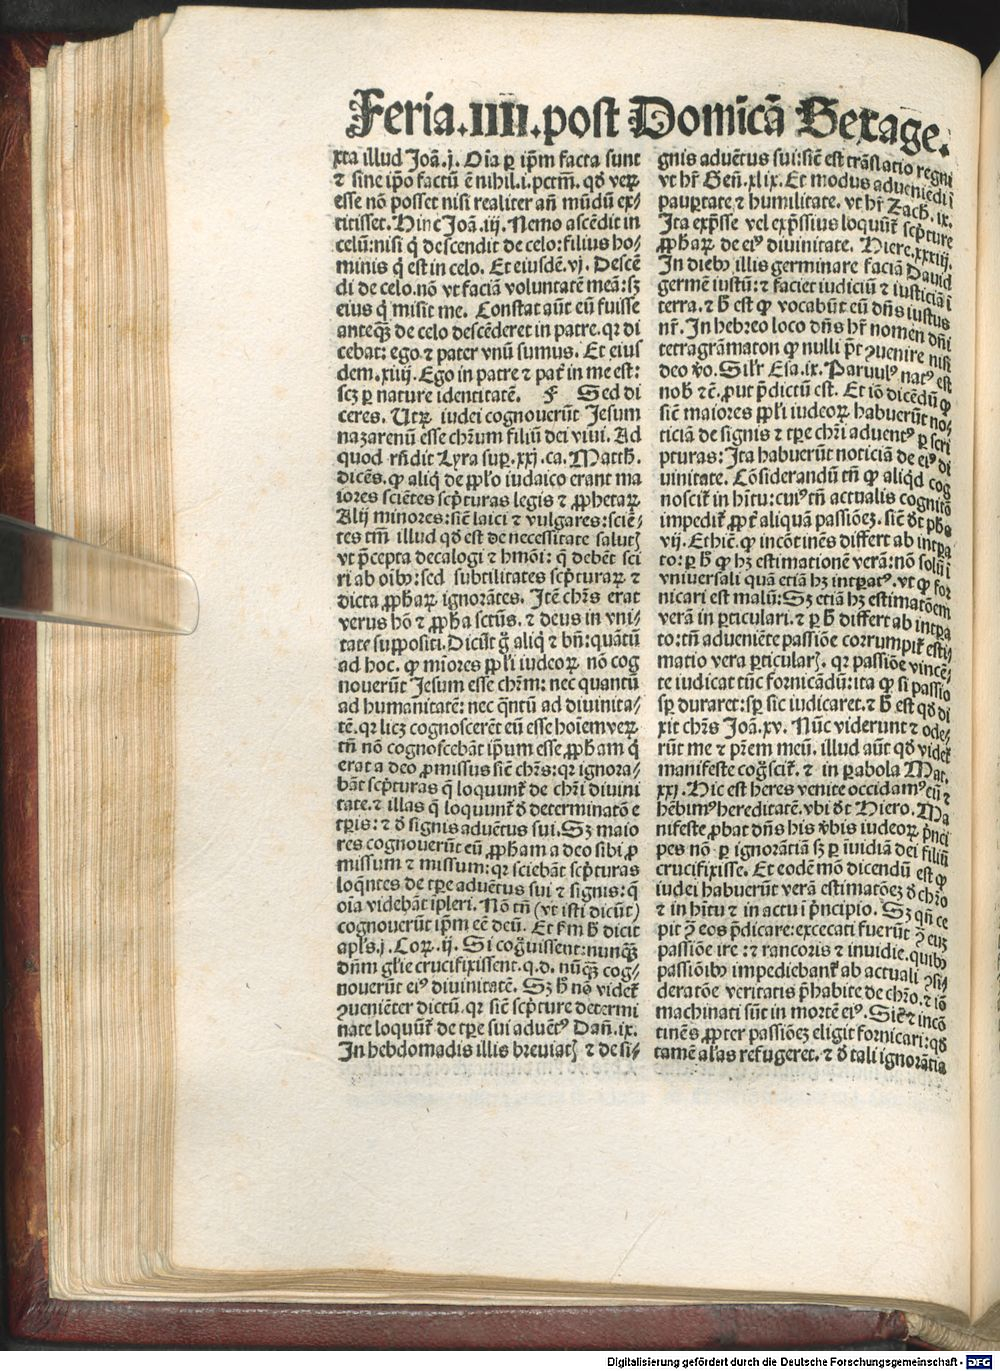 Feria.IIII.post Domīcā Sexage.
xta illud Joā.j. Oīa ꝑ ip̄m facta sunt
⁊ sine ip̄o factū ē nihil.i.pctm̄. qd̄ veꝝ
esse nō posset nisi realiter an̄ mūdū ex-
titisset. Hinc Joā.iij. Nemo ascēdit in
celū: nisi q̄ descendit de celo: filius ho/
minis q̄ est in celo. Et eiusdē.vj. Descē
di de celo. nō vt faciā voluntatē meā: sꝫ
eius q̄ misit me. Constat aūt eū fuisse
anteqꝫ de celo descēderet in patre. qꝛ di
cebat: ego ⁊ pater vnū sumus. Et eius
dem.xiiij. Ego in patre ⁊ pat̄ in me est:
scꝫ ꝑ nature identitatē. F Sed di
ceres. Utꝝ iudei cognouerūt Jesum
nazarenū esse chr̄um filiū dei viui. Ad
quod rn̄dit Lyra suꝑ.xxj.ca. Matth̄.
dicēs. ꝙ aliq̄ de pp̄lo iudaico erant ma
iores sciētes scp̄turas legis ⁊ ꝓphetaꝝ
Alij minores: sic̄ laici ⁊ vulgares: sciē/
tes tm̄ illud qd̄ est de necessitate salutꝭ
vt p̄cepta decalogi ⁊ hmōi: q̄ debēt sci
ri ab oībꝰ: sed subtilitates scp̄turaꝝ ⁊
dicta ꝓph̄aꝝ ignorātes. Itē chr̄s erat
verus hō ⁊ ꝓph̄a sctūs. ⁊ deus in vni/
tate suppositi. Dicūt g̊ aliq̄ ⁊ bn̄: quātū
ad hoc. ꝙ mīores pp̄li iudeoꝝ nō cog
nouerūt Jesum esse chr̄m: nec quantū
ad humanitatē: nec q̄ntū ad diuinita-
tē. qꝛ licꝫ cognoscerēt eū esse hoīem veꝝ
tn̄ nō cognoscebāt ip̄um esse ꝓph̄am q̄
erat a deo ꝓmissus sic̄ chr̄s: qꝛ ignora/
bāt scp̄turas q̄ loquunt̄ de chr̄i diuini
tate. ⁊ illas q̄ loquunt̄ d̄ determinatōe
tꝑis: ⁊ d̄ signis aduētus sui. Sꝫ maio
res cognouerūt eū ꝓph̄am a deo sibi ꝓ
missum ⁊ missum: qꝛ sciebāt scp̄turas
loq̄ntes de tꝑe aduētus sui ⁊ signis: q̄
oīa videbāt īpleri. Nō tn̄ (vt isti dicūt)
cognouerūt ip̄m eē deū. Et km̄ h̄ dicit
apl̄s.j.Coꝝ.ij. Si cog̊uissent: nunqꝫ
dn̄m gl̄ie crucifixissent. q.d. nūqꝫ cog-
nouerūt eiꝰ diuinitatē. Sꝫ h̄ nō videt̄
ꝯueniēter dictū. qꝛ sic̄ scp̄ture determi
nate loquūt̄ de tꝑe sui aduētꝰ Dañ.ix.
In hebdomadis illis breuiatꝭ ⁊ de si/
gnis aduētus sui: sic̄ est trāslatio regni
vt hr̄ Geñ.xlix. Et modus adueniēdi ī
paupertate ⁊ humilitate. vt hr̄ Zach.ix.
Ita exp̄sse vel exp̄ssius loquūt̄ scp̄ture
ꝓph̄aꝝ de eiꝰ diuinitate. Hiere.xxxiij.
In diebꝰ illis germinare faciā Dauid
germē iustū: ⁊ faciet iudiciū ⁊ iusticiā ī
terra. ⁊ h̄ est ꝙ vocabūt eū dn̄s iustus
nr̄. In hebreo loco dn̄s hr̄ nomen dn̄i
tetragrāmaton ꝙ nulli p̄t ꝯuenire nisi
deo v̊o. Sil̄r Esa.ix. Paruulꝰ natꝰ est
nob̄ ⁊c̄. ꝓut p̄dictū est. Et iō dicēdū ꝙ
sic̄ maiores pp̄li iudeoꝝ habuerūt no/
ticiā de signis ⁊ tꝑe chr̄i aduentꝰ ꝑ scri
pturas: Ita habuerūt noticiā de eiꝰ di
uinitate. Cōsiderandū tn̄ ꝙ aliqd̄ cog
noscit̄ in hītu: cuiꝰ tn̄ actualis cognitō
impedit̄ ꝓpt̄ aliquā passiōeꝫ. sic̄ dt̄ ph̄o
vij. Ethic̄. ꝙ incōtinēs differt ab intꝑa
to: ꝑ h̄ ꝙ hꝫ estimationē verā: nō solū ī
vniuersali quā etiā hꝫ intꝑatꝰ. vt ꝙ for
nicari est malū: Sꝫ etiā hꝫ estimatōem
verā in ꝑticulari. ⁊ ꝑ h̄ differt ab intꝑa
to: tn̄ adueniēte passiōe corrumpit̄ esti-
matio vera ꝑticularꝭ. qꝛ passiōe vincē-
te iudicat tūc fornicādū: ita ꝙ si passio
sꝑ duraret: sꝑ sic iudicaret. ⁊ h̄ est qd̄ di
xit chr̄s Joā.xv. Nūc viderunt ⁊ ode/
rūt me ⁊ pr̄em meū. illud aūt qd̄ videt̄
manifeste cog̊scit̄. ⁊ in ꝑabola Mat.
xxj. Hic est heres venite occidamꝰ eū ⁊
hēbimꝰ hereditatē. vbi dt̄ Hiero. Ma
nifeste ꝓbat dn̄s his v̄bis iudeoꝝ p̄nci
pes nō ꝑ ignorātiā sꝫ ꝑ īuidiā dei filiū
crucifixisse. Et eodē mō dicendū est ꝙ
iudei habuerūt verā estimatōeꝫ d̄ chr̄o
⁊ in hītu ⁊ in actu ī p̄ncipio. Sꝫ qn̄ ce
pit ꝯ̄ eos p̄dicare: excecati fuerūt ꝯ̄ euꝫ
passiōe ire: ⁊ rancoris ⁊ inuidie. quibꝰ
passiōibꝰ impediebant̄ ab actuali ꝯsi-
deratōe veritatis p̄habite de chr̄o. ⁊ iō
machinati sūt in mortē eiꝰ. Sic̄ ⁊ incō
tinēs ꝓpter passiōeꝫ eligit fornicari: qd̄
tamē al̄as refugeret. ⁊ d̄ tali ignorātia
Digitalisierung gefördert durch die Deutsche Forschungsgemeinschaft - DFG